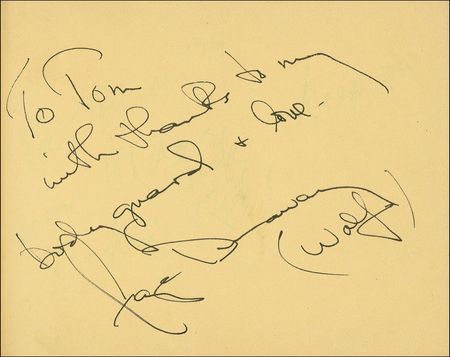 To Tom
with thanks to my
bodyguard + love.
Jack